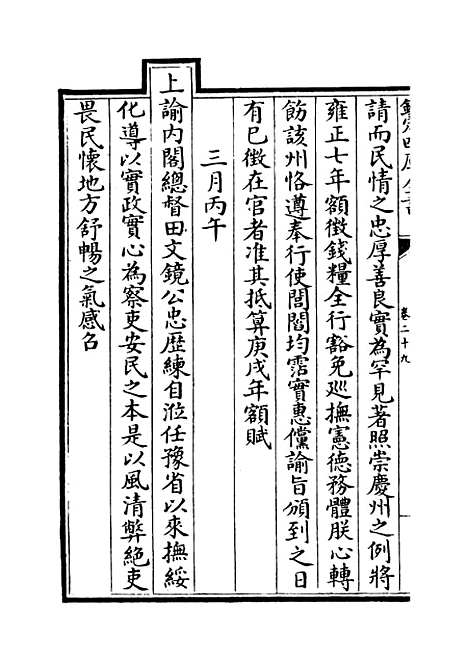 欽定四庫全書
卷二十九
請而民情之忠厚善良實為罕見著照崇慶州之例將
雍正七年額徵錢糧全行豁免巡撫憲德務體朕心轉
飭該州恪遵奉行使閭閻均霑實惠儻諭旨頒到之日
有已徵在官者准其抵算庚戌年額賦
三月丙午
上諭内閣總督田文鏡公忠歴練自涖任豫省以來撫綏
化導以實政實心為察吏安民之本是以風清弊絶吏
畏民懷地方舒暢之氣感召